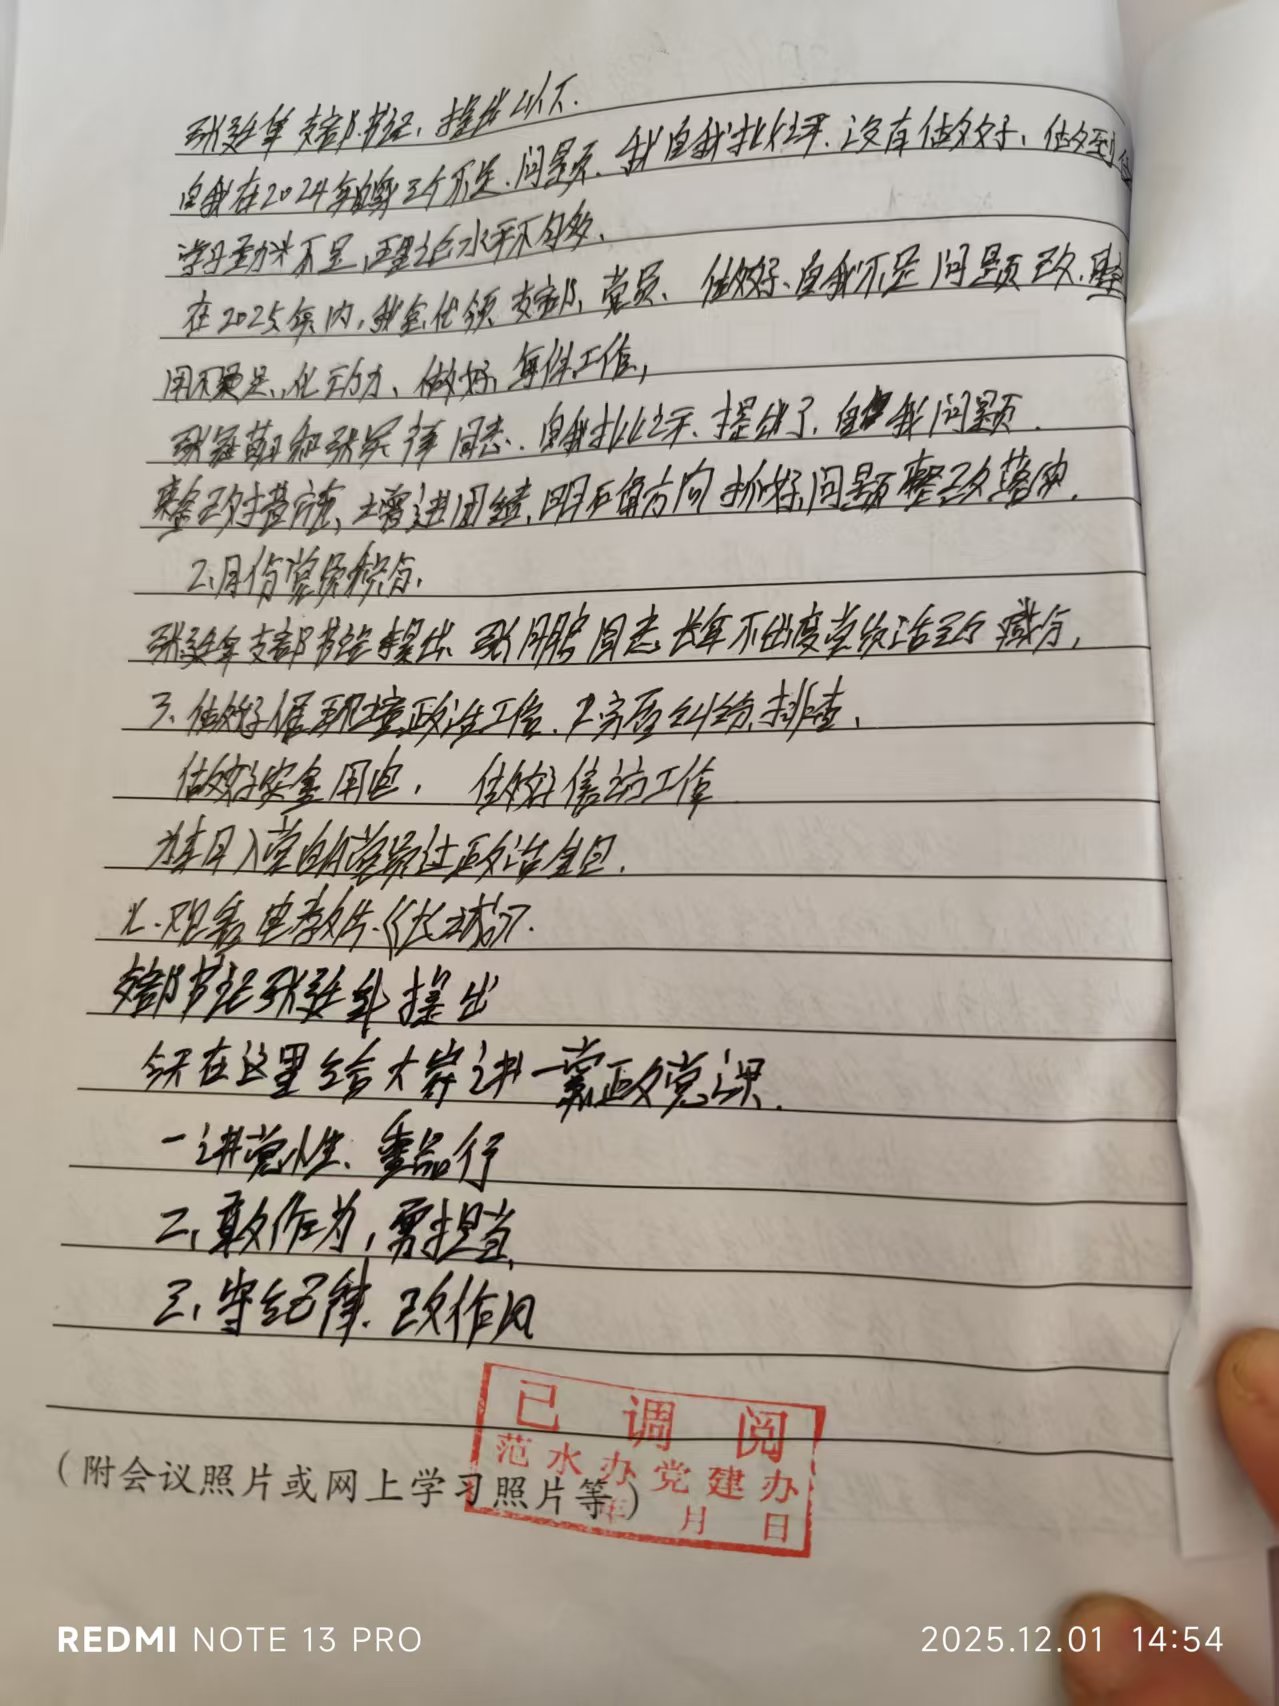 支部书记,提出以下.
自我在2024年的第三个不足.问题.我自我批评.没有做好,做到位
学习动力不足,理论水平不够多、
在2025年内,我会代领支部、党员、做好、自我不足问题改.整
用不足,化动力、做好每件工作,
和同志.自我批评、提出了.自我问题.
整改措施、增进团结,明确方向抓好问题整改落实.
2、月份党员积分.
支部书记提出、张同志长年不出席党组活动减分,
3、做好人居环境整治工作.2、矛盾纠纷排查,
做好安全用电, 做好信访工作
为本月入党的党员过政治生日.
七.观看电教片.《长城》.
支部书记张 提出
今天在这里给大家讲一堂政党课.
一讲党性、重品行
二、敢作为,勇担当,
三、守纪律.改作风
已调阅
范水办党建办
年 月 日
(附会议照片或网上学习照片等)
REDMI NOTE 13 PRO
2025.12.01 14:54